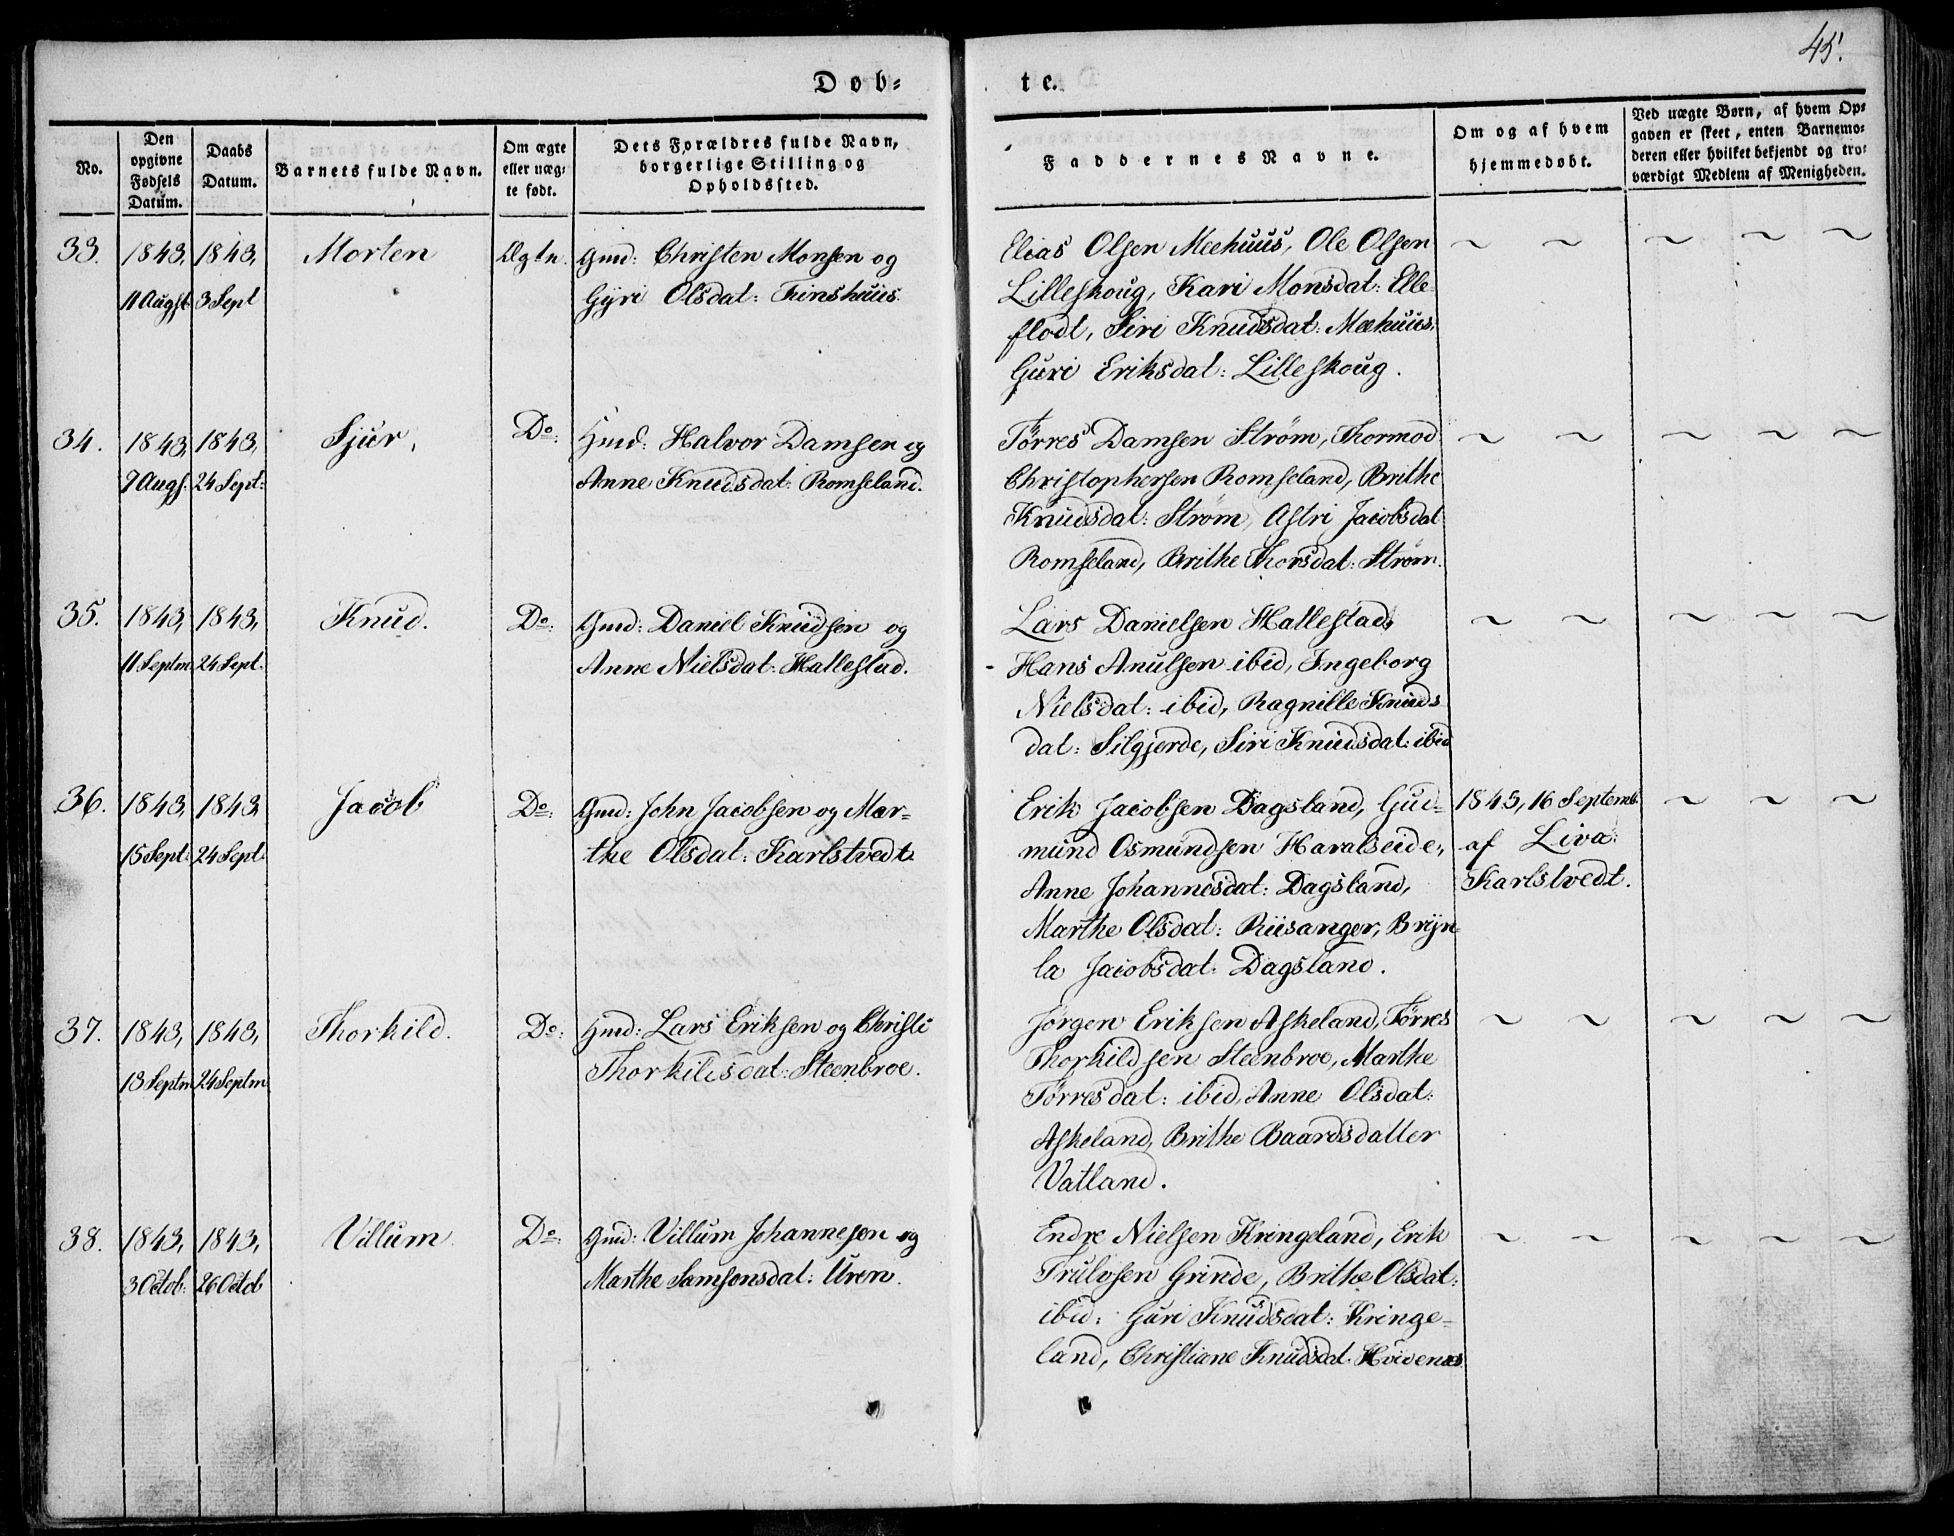 45.
Døb-
te.
No.
Den opgivne Fødsels Datum.
Daabs Datum.
Barnets fulde Navn.
Om ægte eller uægte født.
Dets Forældres fulde Navn, borgerlige Stilling og Opholdssted.
Faddernes Navne.
Om og af hvem hjemmedøbt.
Ved uægte Børn, af hvem Op-
gaven er skeet, enten Barnemo-
deren eller hvilket bekjendt og tro-
værdigt Medlem af Menigheden.
33. 1843, 11 Augst 1843, 3 Sept Morten Ægte
Gmd: Christen Monsen og
Gyri Olsdat:
Elias Olsen Meehuus, Ole Olsen
Lilleskoug, Kari Monsdat: Elle-
flodt, Siri Knudsdat: Meehuus,
Guri Eriksdat: Lilleskoug.
34. 1843, 7 Augs. 1843, 24 Sept: Sjur, Do:
Hmd: Halvor Damsen og
Anne Knudsdat: Romseland.
Tørres Damsen Strøm, Thormod
Christophersen Romseland, Brithe
Knudsdat: Strøm, Astri Jacobsdat
Romseland, Brithe Thorsdat: Strøm.
35. 1843, 11 Septm 1843, 24 Sept. Knud. Do:
Gmd: Daniel Knudsen og
Anne Nielsdat: Hallestad.
Lars Danielsen Hallestad,
Hans Anulsen ibid, Ingeborg
Nielsdat: ibid, Ragnille Knuds
dat: Silgjerde, Siri Knudsdat: ibid
36. 1843, 15 Sept: 1843 24 Sept: Jacob Do:
Gmd: John Jacobsen og Mar-
the Olsdat: Karlstvedt.
Erik Jacobsen Dagsland, Gud-
mund Osmundsen Haralseide,
Anne Johannesdat: Dagsland,
Marthe Olsdat: Riisanger, Bryn-
la Jacobsdat: Dagsland.
1843, 16 Septemb.
af Liva
Karlstvedt.
37. 1843, 13 Septm 1843, 24 Septm Thorkild. Do:
Hmd: Lars Eriksen og Christi
Thorkildsdat: Steenbroe.
Jørgen Eriksen Askeland, Tørres
Thorkildsen Steenbroe, Marthe
Tørresdat: ibid, Anne Olsdat:
Askeland, Brithe Baardsdatter
Vatland.
38. 1843, 3 Octob: 1843, 26 Octob Villum Do:
Gmd: Villum Johannesen og
Marthe Samsonsdat: Uren.
Endre Nielsen Kringeland, Erik
Trulvsen Grinde, Brithe Olsdat:
ibid: Guri Knudsdat: Kringe-
land, Christiane Knudsdat: Hvidenæs